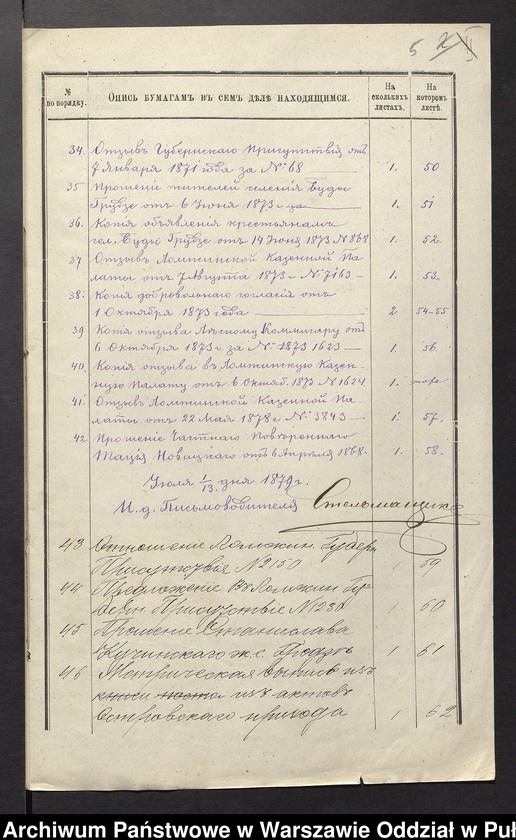 5
№ по порядку.
Опись бумагамъ въ семъ дѣлѣ находящимся.
На сколькихъ листахъ.
На которомъ листѣ.
34. Отзывъ Губернскаго Присутствія отъ
7 Января 1871 года за № 68 1. 50
35 Прошеніе жителей селенія Буды
Грудзе отъ 6 Іюня 1873 г. за 1. 51
36. Копія объявленія крестьянамъ
сел. Буды Грудзе отъ 14 Іюня 1873 № 868 1. 52.
37 Отзывъ Ломжинской Казенной Па
латы отъ 7 Августа 1873 г. № 7163 1. 53.
38. Копія добровольнаго согласія отъ
1 Октября 1873 года 2 54-55
39 Копія отзыва Лѣсному Коммисару отъ
6 Октября 1873 г. за № 1873 1623 1. 56.
40. Копія отзыва въ Ломжинскую Казен-
ную Палату отъ 6 Октяб. 1873 № 1624 1. тоже
41. Отзывъ Ломжинской Казенной Па
латы отъ 22 Мая 1878 г. № 3843 1. 57.
42 Прошеніе Частнаго Повѣреннаго
Новицкаго отъ 6 Апрѣля 1868. 1. 58.
Іюля 1/13. дня 1879 г.
И. д. Письмоводителя
43 Отношеніе Ломжин. Губерн
Присутствіе № 2150 1 59
44 Предложеніе Ломжин Гу
берн. Присутствіе № 230 1 60
45 Прошеніе Станислава
Кучинскаго ж. с. Грудзе 1 61
46 Метрическая выпись изъ
книги изъ актовъ
Островскаго прихода 1 62
Archiwum Państwowe w Warszawie Oddział w Puł